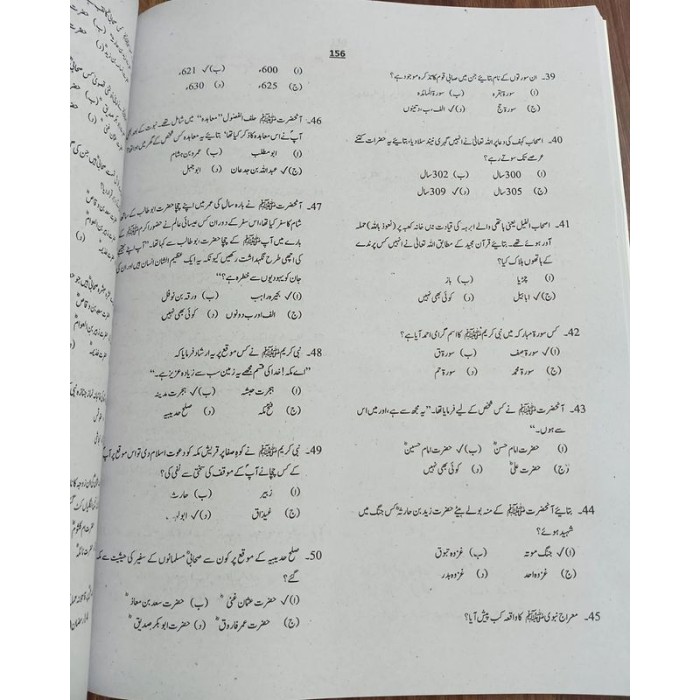 156
39۔ ان سورتوں کے نام بتایئے جن میں صابی قوم کا تذکرہ موجود ہے؟
(ا) سورۃ بقرہ (ب) سورۃ المائدہ
(ج) سورۃ حج (د)✓ الف، ب، د تینوں
40۔ اصحاب کہف کی دعا پر اللہ تعالیٰ نے انہیں گہری نیند سلا دیا، بتایئے یہ حضرات کتنے
عرصے تک سوتے رہے؟
(ا) 300سال (ب) 302سال
(ج) 305سال (د)✓ 309سال
41۔ اصحاب الفیل یعنی ہاتھی والے ابرہہ کی قیادت میں خانہ کعبہ پر (نعوذ باللہ) حملہ
آور ہوئے تھے۔ بتایئے قرآن مجید کے مطابق اللہ تعالیٰ نے انہیں کس پرندے
کے ہاتھوں ہلاک کیا؟
(ا) چڑیا (ب) باز
(ج)✓ ابابیل (د) کوئی بھی نہیں
42۔ کس سورۃ مبارکہ میں نبی کریم ﷺ کا اسم گرامی احمد آیا ہے؟
(ا)✓ سورۃ صف (ب) سورۃ ق
(ج) سورۃ محمد (د) سورۃ حم
43۔ آنحضرت ﷺ نے کس شخص کے لیے فرمایا تھا۔ ”یہ مجھ سے ہے، اور میں اس
سے ہوں۔“
(ا) حضرت امام حسنؓ (ب)✓ حضرت امام حسینؓ
(ج) حضرت علیؓ (د) کوئی بھی نہیں
44۔ بتایئے آنحضرت ﷺ کے منہ بولے بیٹے حضرت زید بن حارثہؓ کس جنگ میں
شہید ہوئے؟
(ا)✓ جنگ موتہ (ب) غزوہ تبوک
(ج) غزوہ احد (د) غزوہ بدر
45۔ معراج نبوی ﷺ کا واقعہ کب پیش آیا؟
(ا) 600ء (ب)✓ 621ء
(ج) 625ء (د) 630ء
46۔ آنحضرت ﷺ حلف الفضول ”معاہدہ“ میں شامل تھے۔ نبوت کے بعد بھی
آپؐ نے اس معاہدہ کا ذکر کیا تھا؟ بتایئے یہ معاہدہ کس شخص کے گھر میں ہوا تھا؟
(ا) ابو مطلب (ب) عمرو بن ہشام
(ج)✓ عبداللہ بن جدعان (د) ابو جہل
47۔ آنحضرت ﷺ نے بارہ سال کی عمر میں اپنے چچا حضرت ابو طالب کے ساتھ
شام کا سفر کیا تھا، اس سفر کے دوران کس عیسائی عالم نے حضور اکرم ﷺ کے
بارے میں آپ ﷺ کے چچا حضرت ابو طالب سے کہا تھا۔ ”آپ اپنے بھتیجے
کی اچھی طرح نگہداشت رکھیں کیونکہ یہ ایک عظیم الشان انسان ہیں اور ان کی
جان کو یہودیوں سے خطرہ ہے؟“
(ا)✓ بحیرہ راہب (ب) ورقہ بن نوفل
(ج) الف اور ب دونوں (د) کوئی بھی نہیں
48۔ نبی کریم ﷺ نے کس موقع پر یہ ارشاد فرمایا کہ
”اے مکہ! خدا کی قسم مجھے یہ زمین سب سے زیادہ عزیز ہے۔“
(ا) ہجرت حبشہ (ب)✓ ہجرت مدینہ
(ج) فتح مکہ (د) صلح حدیبیہ
49۔ نبی کریم ﷺ نے کوہ صفا پر قریش مکہ کو دعوت اسلام دی تو اس موقع پر آپؐ
کے کس چچا نے آپؐ کے موقف کی سختی سے نفی کی؟
(ا) زبیر (ب) حارث
(ج) غیداق (د)✓ ابولہب
50۔ صلح حدیبیہ کے موقع پر کون سے صحابیؓ مسلمانوں کے سفیر کی حیثیت سے مکہ
گئے؟
(ا)✓ حضرت عثمان غنیؓ (ب) حضرت سعد بن معاذؓ
(ج) حضرت عمر فاروقؓ (د) حضرت ابوبکر صدیقؓ